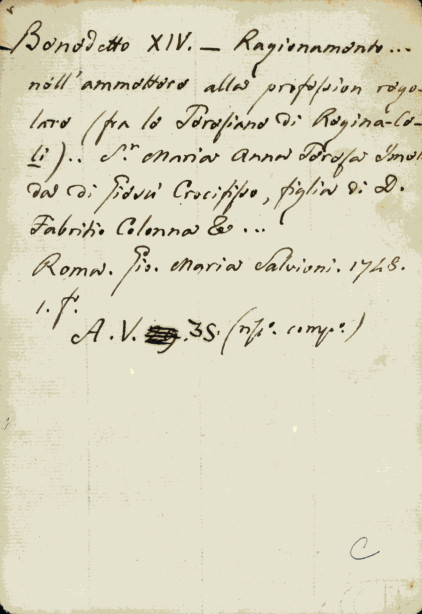 Benedetto XIV. — Ragionamento...
nell'ammettere alla profession rego-
lare (fra le Teresiane di Regina-Cœ-
li).. S.r Maria Anna Teresa Imel
da di Giesù Crocifisso, figlia di D.
Fabritio Colonna & ...
Roma. Gio. Maria Salvioni. 1748.
1. f.
A. V. 35.
C